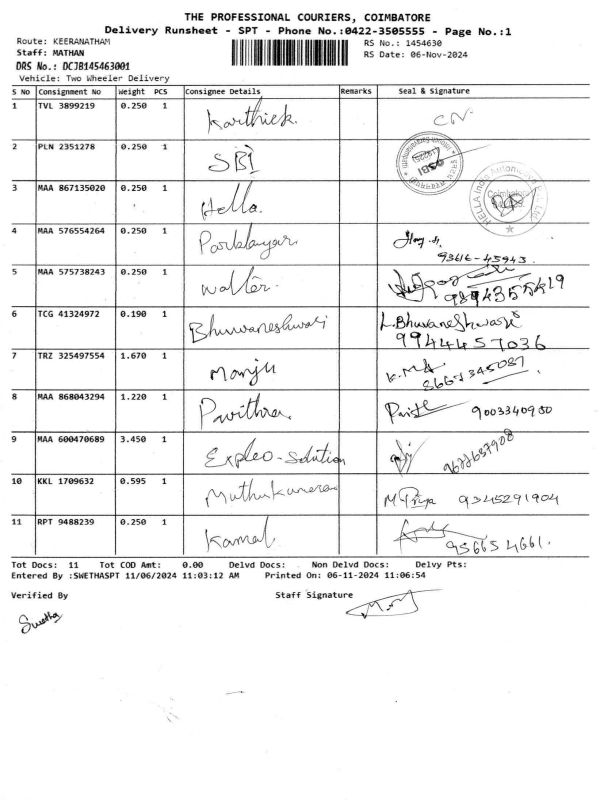 THE PROFESSIONAL COURIERS, COIMBATORE
Delivery Runsheet - SPT - Phone No.:0422-3505555 - Page No.:1
Route: KEERANATHAM
RS No.: 1454630
Staff: MATHAN
RS Date: 06-Nov-2024
DRS No.: DCJB145463001
Vehicle: Two Wheeler Delivery
S No Consignment No Weight PCS Consignee Details Remarks Seal & Signature
1 TVL 3899219 0.250 1 Karthick
2 PLN 2351278 0.250 1 SBI
3 MAA 867135020 0.250 1 Hella
HELLA India Automotive
4 MAA 576554264 0.250 1
93616-45943
5 MAA 575738243 0.250 1 Walter
6 TCG 41324972 0.190 1 Bhuvaneshwari L.Bhuvaneshwari
9944457036
7 TRZ 325497554 1.670 1 Manju
8 MAA 868043294 1.220 1 Pavithra 9003340950
9 MAA 600470689 3.450 1 Expleo-Solution
9622657908
10 KKL 1709632 0.595 1 M Priya 9345291904
11 RPT 9488239 0.250 1 Kamal
956654661.
Tot Docs: 11 Tot COD Amt: 0.00 Delvd Docs: Non Delvd Docs: Delvy Pts:
Entered By :SWETHASPT 11/06/2024 11:03:12 AM Printed On: 06-11-2024 11:06:54
Verified By Staff Signature
Swetha